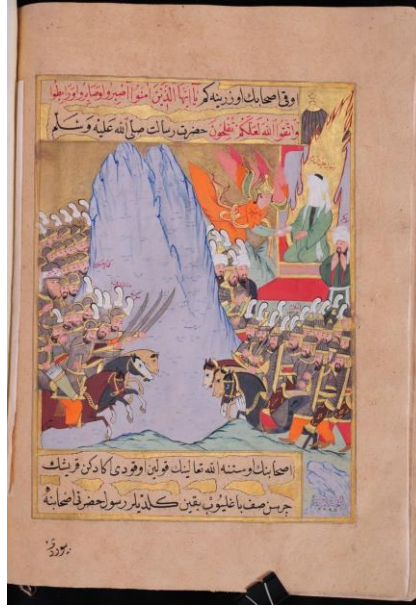 وقى اصحابك اوزرينه كم يا ايها الذين امنوا اصبروا وصابروا ورابطوا
واتقوا الله لعلكم تفلحون حضرت رسالت صلى الله عليه وسلم
اصحابنك اوستنه الله تعالينك قولين اوقودى اكادكن قريشك
جرسن صف باغليوب يقين كلديلر رسول حضرتى اصحابنه
بيوردى